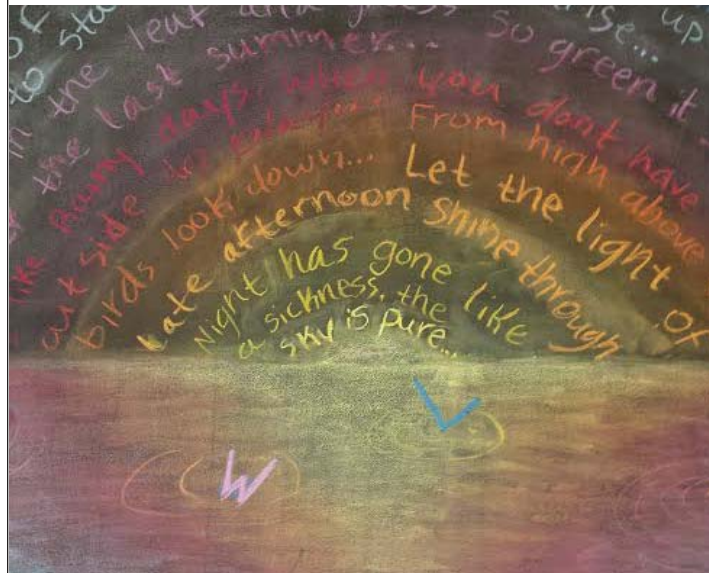 of ... up
to sta rise...
in the leaf and grass so green it
the last summer...
like Rainy days, when you dont have
outside From high above
birds look down... Let the light of
Late afternoon shine through
Night has gone like
a sickness. the
sky is pure...
W